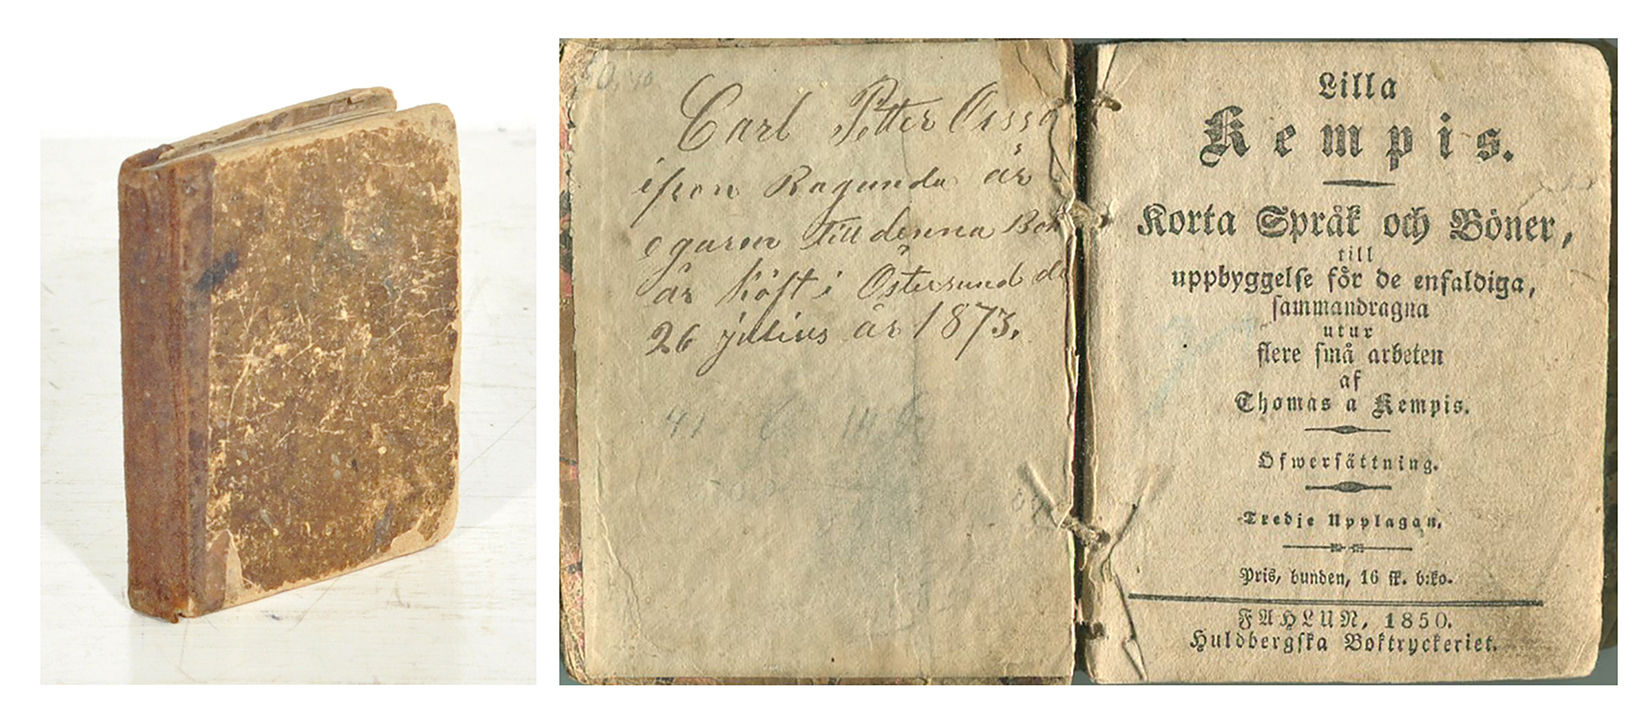 Carl Petter Ersso
ifron Ragunda är
egaren till denna Bok
är köft i Östersund de
26 julius år 1873.
Lilla
Kempis.
Korta Språk och Böner,
till
uppbyggelse för de enfaldiga,
sammandragna
utur
flere små arbeten
af
Thomas a Kempis.
Öfwersättning.
Tredje Upplagan.
Pris, bunden, 16 sk. b:ko.
FAHLUN, 1850.
Huldbergska Boktryckeriet.